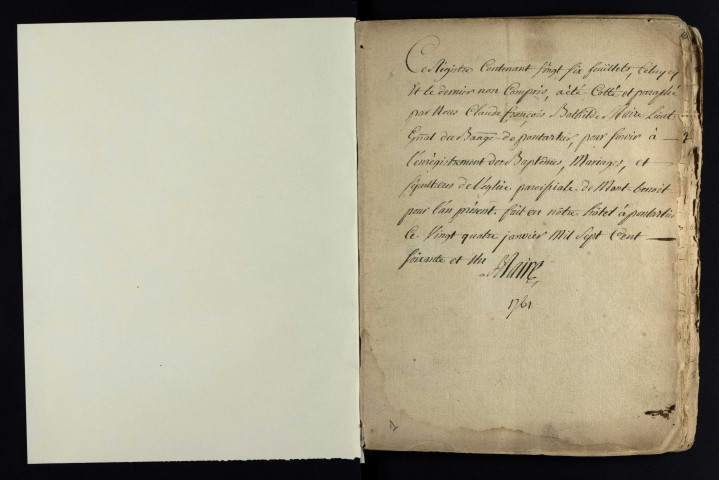 Ce Registre Contenant Vingt six feuillets, Celuy cy
Et le dernier non Compris, a été Cotté et paraphé
par Nous Claude françois Bathilde Maire Lieut
Gnal du Bange de pontarlier, pour servir à
l'enregistrement des Baptêmes, Mariages, et
sepultures de l'église paroissiale de Mont-benoit
pour l'an présent. fait en nôtre hôtel à pontarlier
Ce Vingt quatre janvier Mil Sept Cent
soixante et Un Maire
1761